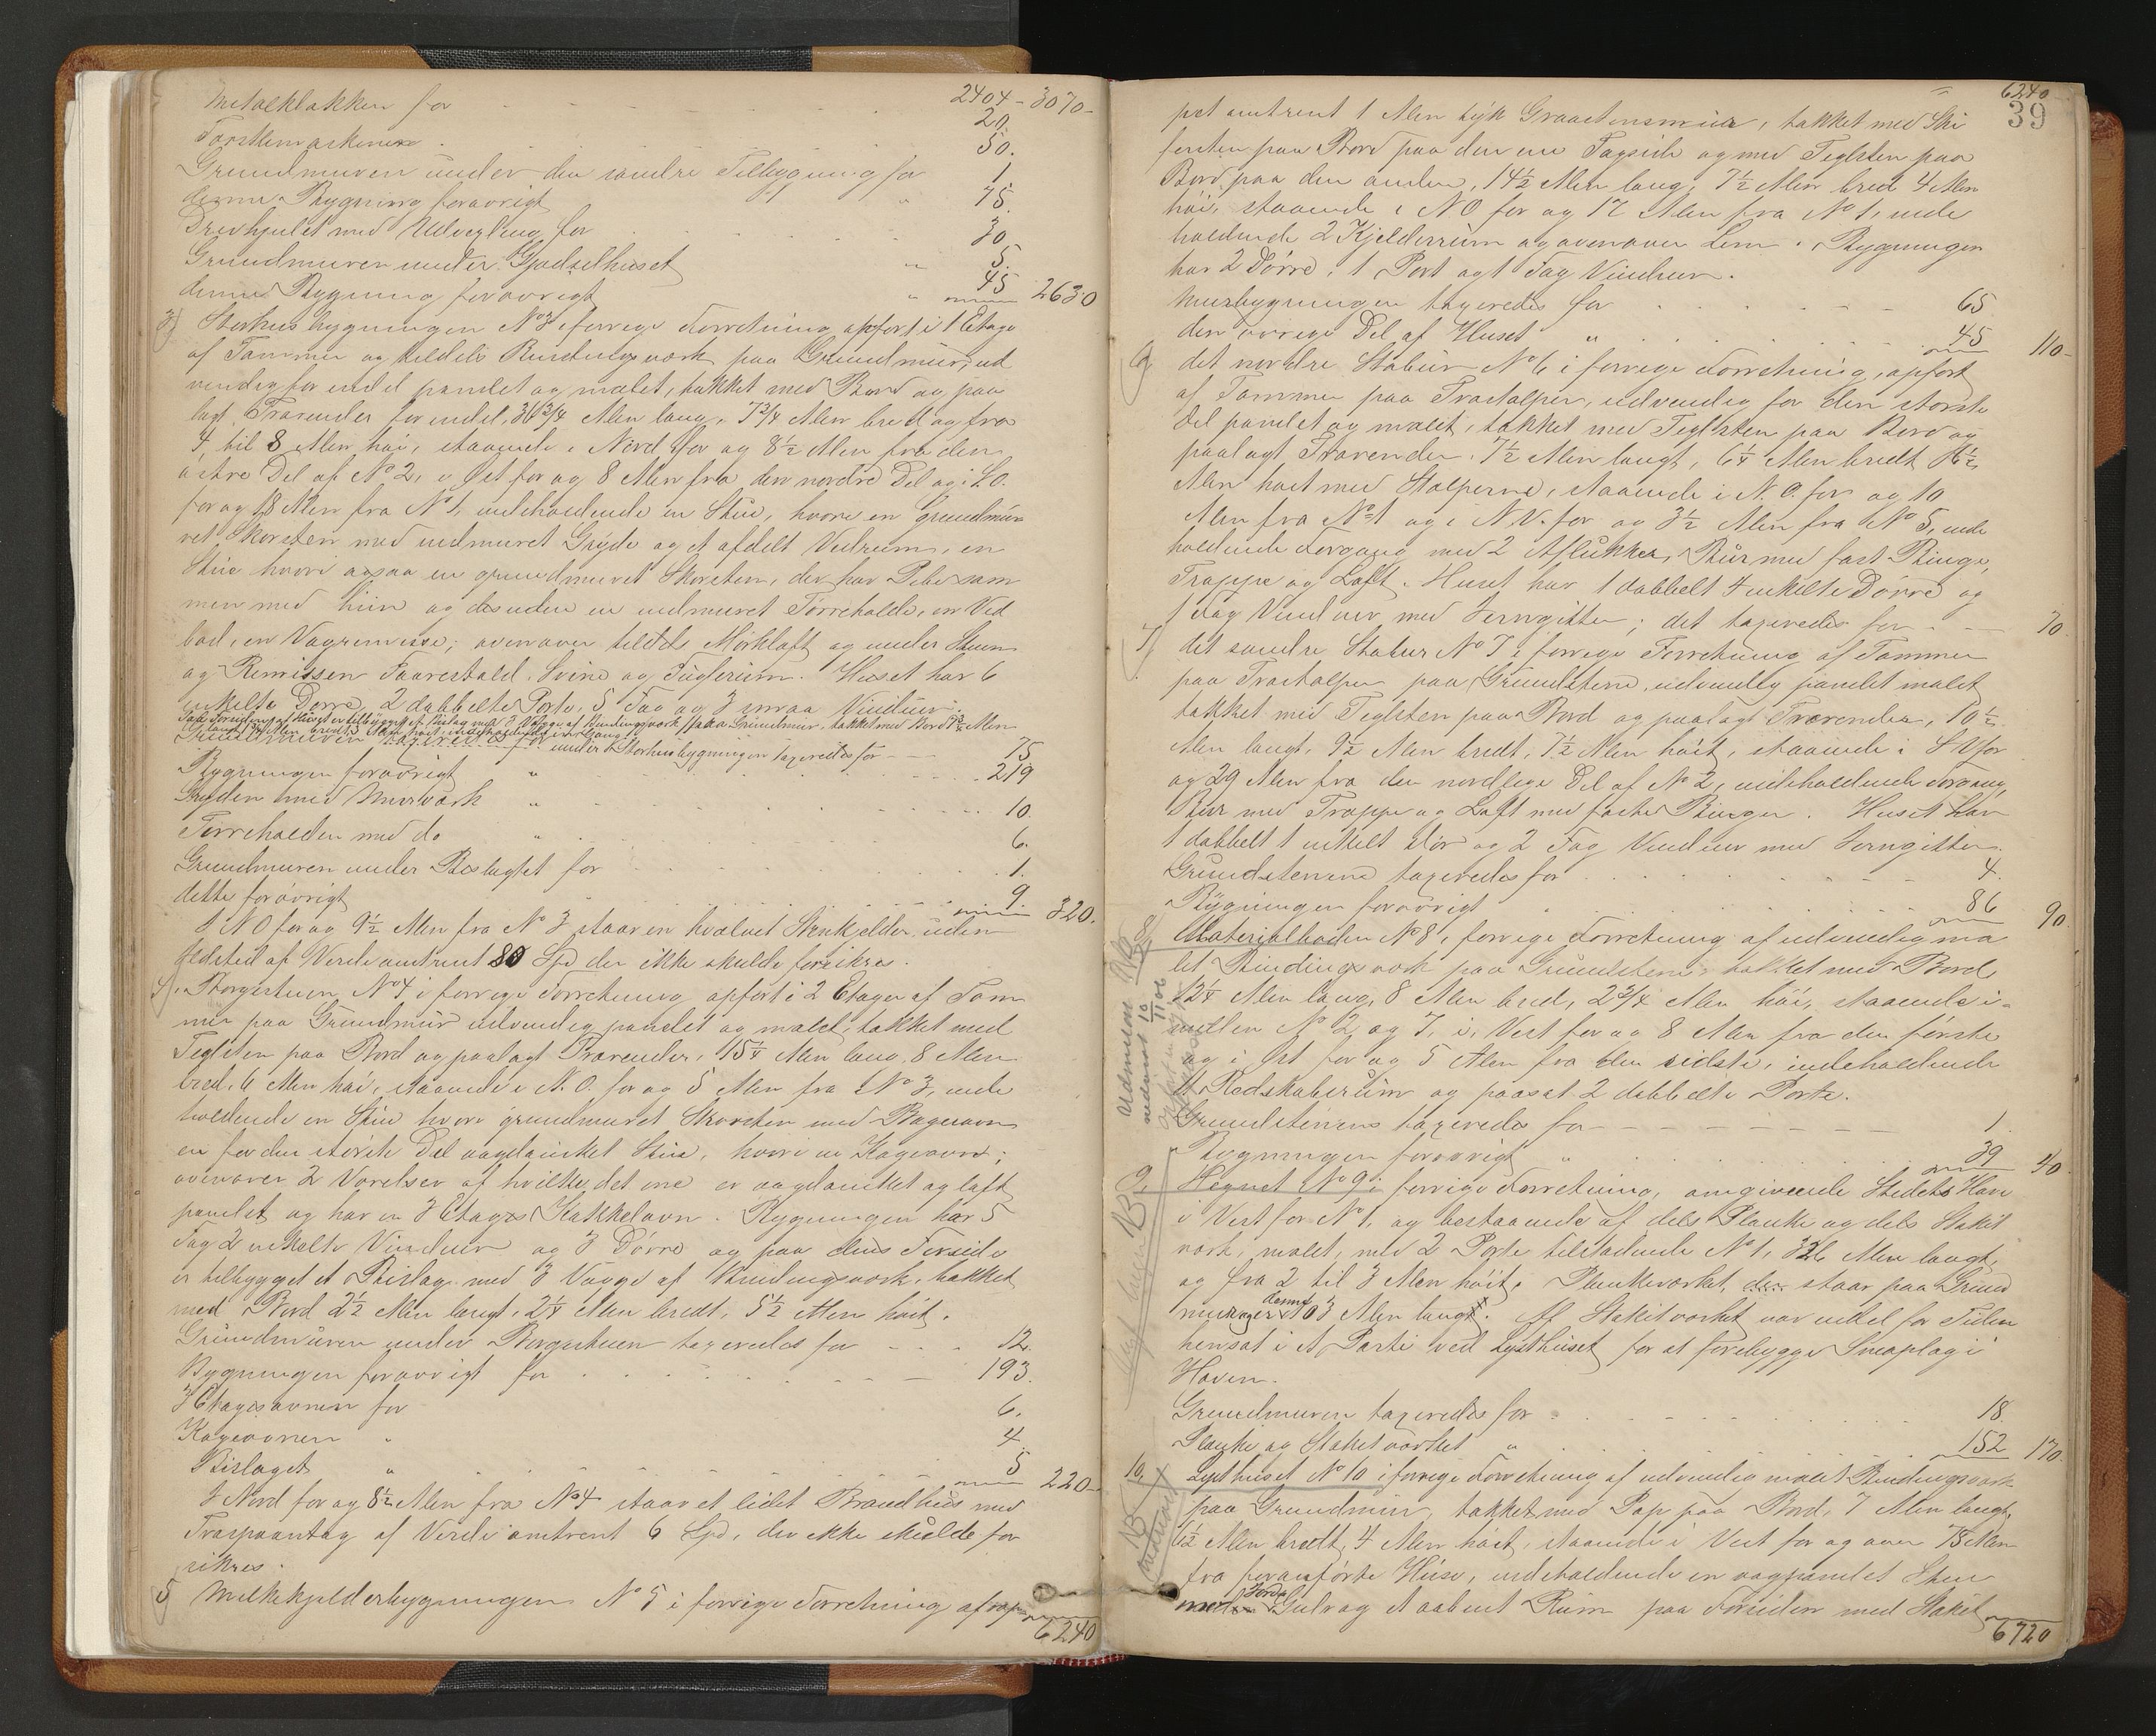 Metalklokken for 2404 - 3070 -
20.
Tærskemaskinen 50.
Grundmuren under den søndre Tilbygning for 1.
denne Bygning forøvrigt " 75.
Drivhjulet med Udvexling for 30.
Grundmuren under Gjødselhuset " 5.
denne Bygning forøvrigt " 45 2630
3) Storhusbygningen No 3 i forrige Forretning, opført i 1 Etage
af Tømmer og tildels Bindingsværk paa Grundmur, ud
vendig for endel panelet og malet, tækket med Bord og paa
lagt Trærender for endel, 36 3/4 Alen lang, 7 3/4 Alen bred og fra
4 til 8 Alen høi, staaende i Nord for og 8 1/2 Alen fra den
østre Del af No 2, i Øst for og 8 Alen fra den nordre Del og i S.O.
for og 18 Alen fra No 1, indeholdende en Stue, hvori en grundmu
ret Skorsten med indmuret Gryde og et afdelt Vedrum, en
Stue hvori ogsaa en grundmuret Skorsten, der har Pibe sam
men med hiin og desuden en indmuret Tørreholde, en Ved
bod, en Vognremisse; ovenover tildels Mørkloft og under Stuen
og Remissen Faarestald, Svine og Fuglerum. Huset har 6
enkelte Dørre, 2 dobbelte Porte, 5 Fag og 3 smaa Vinduer.
Paa Forsiden af Huset er tilbygget et Bislag med 3 Vægge af Bindingsværk paa Grundmur, tækket med Bord 7 1/2 Alen
Grundmuren under Storhusbygningen taxeredes for 75
Bygningen forøvrigt " 219
Gryden med Murværk " 10.
Tørreholden med do " 6.
Grundmuren under Bislaget for 1.
dette forøvrigt 9. 320.
I NO for og 9 1/2 Alen fra No 3 staar en hvælvet Stenkjelder uden
Ildsted af Verdi omtrent 80 Spd der ikke skulde forsikres.
4) Borgestuen No 4 i forrige Forretning opført i 2 Etager af Tøm
mer paa Grundmur udvendig panelet og malet, tækket med
Teglsten paa Bord og paalagt Trærender, 15 1/4 Alen lang, 8 Alen
bred, 6 Alen høi, staaende i N.O. for og 5 Alen fra No 3, inde
holdende en Stue hvori grundmuret Skorsten med Bagerovn
en for den største Del vaaglænket Stue, hvori en Kogeovn;
ovenover 2 Værelser af hvilke det ene er vaglænket og loft
panelet og har en 3 Etages Kakkelovn. Bygningen har 5
Fag 2 enkelte Vinduer og 3 Dørre og paa dens Forside
er tilbygget et Bislag med 3 Vægge af Bindingsværk, tækket
med Bord 2 1/2 Alen langt, 2 1/4 Alen bredt, 5 1/2 Alen høit.
Grundmuren under Borgestuen taxeredes for 12.
Bygningen forøvrigt for 193.
3 Etagesovnen for 6.
Kogeovnen " 4.
Bislaget " 5 220 -
I Nord for og 8 1/2 Alen fra No 4 staar et lidet Brændhus med
Træspaantag af Verdi omtrent 6 Spd, der ikke skulde for
sikres.
5 Melkekjelderbygningen No 5 i forrige Forretning af
6240
6240
39
pet omtrent 1 Alen tyk Graastensmur, tækket med Ski
fersten paa Bord paa den ene Tagside og med Teglsten paa
Bord paa den anden, 14 1/2 Alen lang, 7 1/2 Alen bred 4 Alen
høi, staaende i NO for og 17 Alen fra No 1, inde
holdende 2 Kjelderrum og ovenover Lem. Bygningen
har 2 Dørre, 1 Port og 1 Fag Vinduer.
Murbygningen taxeredes for 65
den øvrige Del af Huset " 45 110 -
6) det nordre Stabur No 6 i forrige Forretning, opført
af Tømmer paa Træstolper, udvendig for den største
Del panelet og malet, tækket med Teglsten paa Bord og
paalagt Trærender, 7 1/2 Alen langt, 6 1/4 Alen bredt 6 1/2
Alen høit med Stolperne, staaende i N.O. for og 10
Alen fra No 1 og i N.V. for og 3 1/2 Alen fra No 5, inde
holdende Forgang med 2 Aflukker, Bur med fast Binge,
Trappe og Loft. Huset har 1 dobbelt 4 enkelte Dørre og
1 Fag Vinduer med Jerngitter; det taxeredes for 70
7) det søndre Stabur No 7 i forrige Forretning af Tømmer
paa Træstolper paa Grundstene, udvendig panelet malet
tækket med Teglsten paa Bord og paalagt Trærender, 10 1/2
Alen langt, 9 1/2 Alen bredt, 7 1/2 Alen høit, staaende i SV for
og 29 Alen fra den nordlige Del af No 2, indeholdende Forgang,
Bur med Trappe og Loft med faste Binger. Huset har
1 dobbelt 1 enkelt Dør og 2 Fag Vinduer med Jerngitter.
Grundstenene taxeredes for 4.
Bygningen forøvrigt " 86 90
8 Materialboden No 8 i forrige Forretning af udvendig ma
let Bindingsværk paa Grundstene, tækket med Bord
12 1/4 Alen lang, 8 Alen bred, 2 3/4 Alen høi, staaende i-
mellem No 2 og 7, i Vest for og 8 Alen fra den første
og i Øst for og 5 Alen fra den sidste, indeholdende
1 Redskabsrum og paasat 2 dobbelte Porte.
Grundstenene taxeredes for 1.
Bygningen forøvrigt " 39 40
9) Hegnet No 9 i forrige Forretning, omgivende Stedets Have
i Vest for No 1, og bestaaende af dels Planke og dels Stakit
værk, malet, med 2 Porte tilstødende No 1, 326 Alen langt,
og fra 2 til 3 Alen høit. Plankeværket, der staar paa Grund
mur, denne 103 Alen lang. Af Stakitværket var endel for Tiden
hensat i et Parti ved Lysthuset for at forebygge Sneaplag i
Haven.
Grundmuren taxeredes for 18.
Planke og Stakitværket " 152 170
10 Lysthuset No 10 i forrige Forretning af udvendig malet Bindingsværk
paa Grundmur, tækket med Pap paa Bord, 7 Alen langt,
6 1/2 Alen bredt, 4 Alen høit, staaende i Vest for og over 75 Alen
fra foranførte Huse, indeholdende en vægpanelet Stue
med Jord Gulv og et aabent Rum paa Forsiden med Stakit
6720